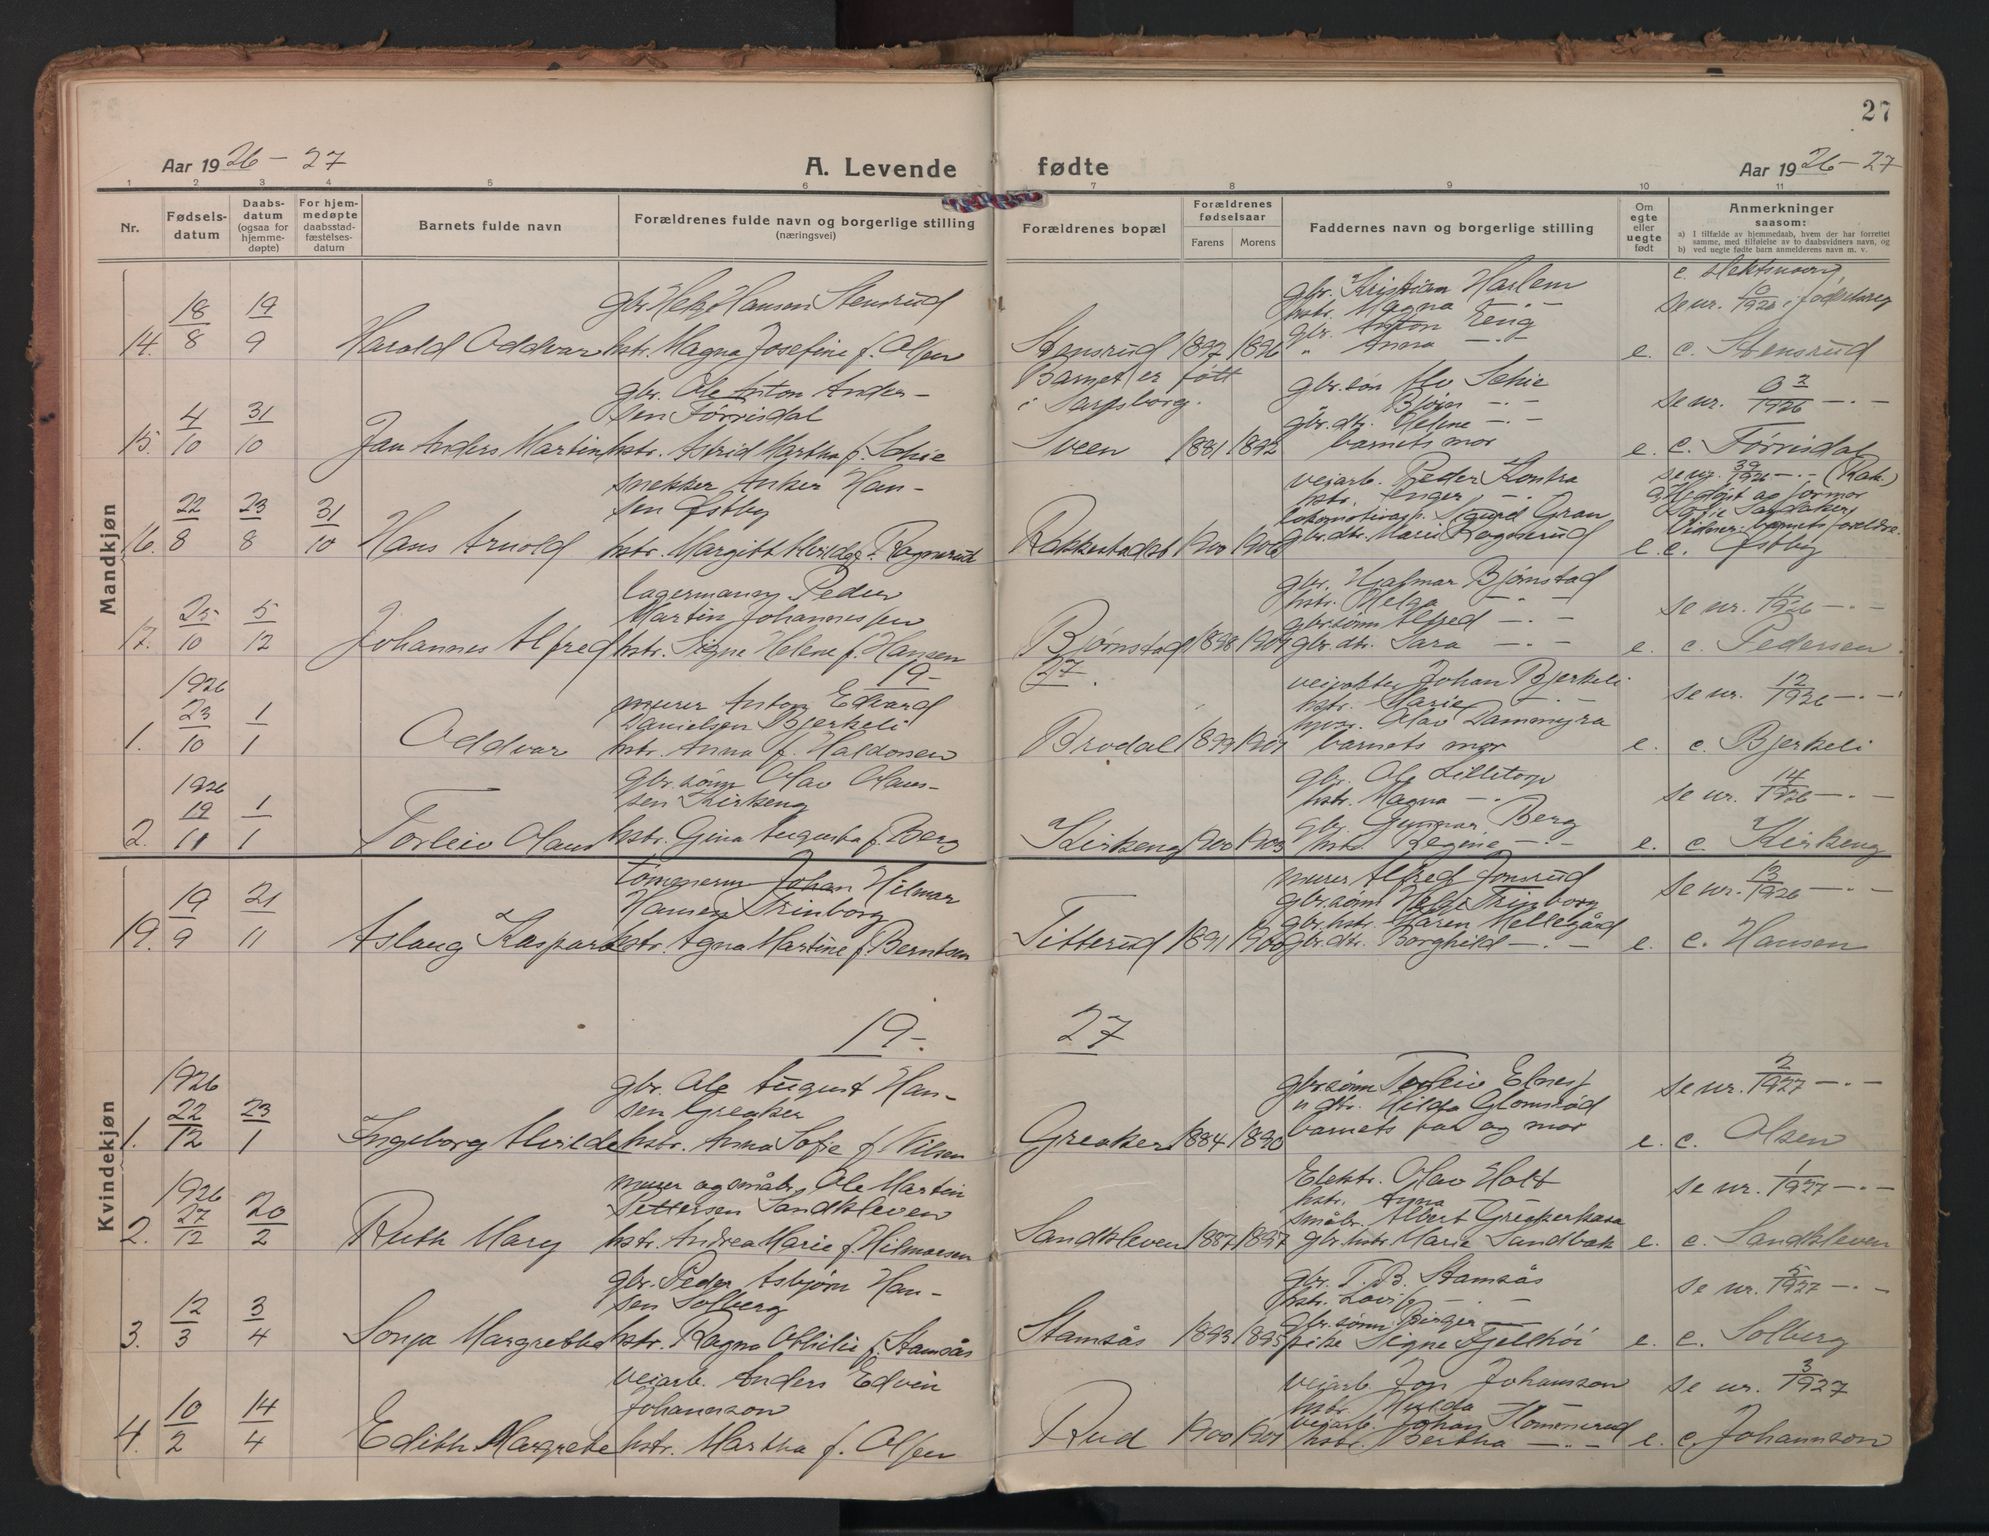 27
Aar 1926 - 27
A. Levende
fødte
Aar 1926 - 27
1 2 3 4 5 6 7 8 9 10 11
Nr.
Fødsels-
datum
Daabs-
datum
(ogsaa for
hjemme-
døpte)
For hjem-
medøpte
daabsstad-
fæstelses-
datum
Barnets fulde navn
Forældrenes fulde navn og borgerlige stilling
(næringsvei)
Forældrenes bopæl
Forældrenes
fødselsaar
Farens
Morens
Faddernes navn og borgerlige stilling
Om
egte
eller
uegte
født
Anmerkninger
saasom:
a) I tilfælde av hjemmedaab, hvem der har forrettet
samme, med tilføielse av to daabsvidners navn, og
b) ved uegte fødte barn anmelderens navn m. v.
Mandkjøn
gbr. Helge Hansen Stensrud
gbr. Kristian Harlem
hstr. Magna -"-
gbr. Anton Eng
14. 18/8 19/9 Harald Oddvar hstr. Magna Josefine f. Olsen Stensrud 1897 1896 " Anna -"- e. c. Stensrud
Barnet er født
i Sarpsborg.
gbr. Ole Anton Ander-
sen Tørrisdal
gbr.søn Alv Schie
" Bjørn -"-
gbr.dtr. Helene -"-
se nr. 3/1926 -"-
15. 4/10 31/10 Jan Anders Martin hstr. Astrid Martha f. Schie Sveen 1881 1892 barnets mor e. c. Tørrisdal
snekker Anker Han-
sen Østby
veiarb. Peder Kontra
hstr. Inger -"-
lokomotivasp. Sigurd Gran
se nr. 39/1926 -"- (Rak.)
a) Hedøpt av formor
Sofie Sandaker
Vidner: barnets foreldre.
16. 22/8 23/8 31/10 Hans Arnold hstr. Margitt Alvilde f. Ragnerud Rakkestadst. 1900 1906 gbr.dtr. Marie Rognerud e. c. Østby
lagermann Peder
Martin Johannessen
gbr. Hjalmar Bjørnstad
hstr. Helga -"-
gbr.sønn Alfred -"-
se nr. 11/1926 -"-
17. 25/10 5/12 Johannes Alfred hstr. Signe Helene f. Hansen Bjørnstad 1898 1904 gbr.dtr. Sara -"- e. c. Pedersen
19-
27.
1926
murer Anton Edvard
Danielsen Bjerkeli
veivokter Johan Bjerkeli
hstr. Marie -"-
Olav Dammyra
se nr. 12/1926 -"-
1. 23/10 1/1 Oddvar hstr. Anna f. Haldorsen Brodal 1899 1904 barnets mor e. c. Bjerkeli
1926
gbr.sønn Olav Olaus-
sen Kirkeng
gbr. Ole Lilletorp
hstr. Magna -"-
gbr. Gunnar Berg
se nr. 14/1926 -"-
2. 19/11 1/1 Torleiv Olaus hstr. Gina Augusta f. Berg Kirkeng 1900 1903 hstr. Regine -"- e. c. Kirkeng
Kvindekjøn
tømmerm. Johan Hilmar
Hansen Trinborg
murer Alfred Jonsrud
gbr.sønn Helge Trinborg
gbr.hstr. Maren Mellegård
se nr. 13/1926 -"-
19. 19/9 21/11 Aslaug Kaspara hstr. Agna Martine f. Berntsen Titterud 1891 1900 gbr.dtr. Borghild -"- e. c. Hansen
19-
27
1926
gbr. Ole August Han-
sen Greaker
gbr.sønn Torleiv Elnes
" dtr. Hilda Glomsrød
se nr. 2/1927 -"-
1. 22/12 23/1 Ingeborg Alvilde hstr. Anna Sofie f. Nilsen Greaker 1884 1890 barnets far og mor e. c. Olsen
1926
murer og småbr. Ole Martin
Pettersen Sandkleven
Elektr. Olav Holt
hstr. Anna
småbr. Albert Greakerkasa
se nr. 1/1927 -"-
2. 27/12 20/2 Ruth Mary hstr. Andrea Marie f. Hilmarsen Sandkleven 1887 1897 gbr.hstr. Marie Sandbæk e. c. Sandkleven
gbr. Peder Asbjørn Han-
sen Solberg
gbr. T. B. Stamsås
hstr. Lovise -"-
gbr.sønn Birger -"-
se nr. 5/1927 -"-
3. 12/3 3/4 Sonja Margrethe hstr. Ragna Othilie f. Stamsås Stamsås 1893 1895 pike Signe Fjellhøi e. c. Solberg
veiarb. Anders Edvin
Johannson
veiarb. Jon Johansson
hstr. Hulda
veiarb. Johan Tømmerud
se nr. 3/1927
4. 10/2 14/4 Edith Margrete hstr. Martha f. Olsen Rud 1900 1901 hstr. Bertha -"- e. c. Johannson